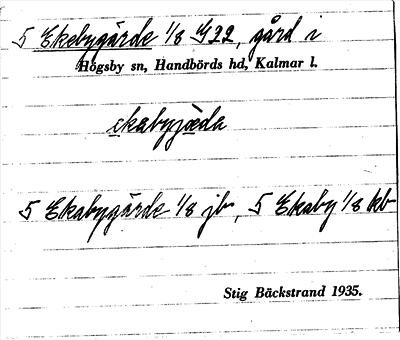 5 Ekebygärde 1/8 G22, gård i
Högsby sn, Handbörds hd, Kalmar l.
ekabyjæda
5 Ekabygärde 1/8 jb, 5 Ekaby 1/8 kb
Stig Bäckstrand 1935.